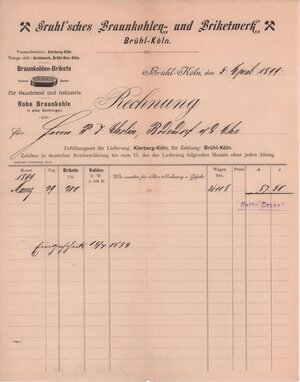 Gruhl'sches Braunkohlen- und Briketwerk
Brühl-Köln.
Versandstation: Kierberg-Köln
Telegr.-Adr.: Gruhlwerk, Brühl-Bez. Köln.
Braunkohlen-Brikets
für Hausbrand und Industrie
Rohe Braunkohle
Brühl-Köln, den 5 April 1899
Rechnung
für Herrn P J
Erfüllungsort für Lieferung: Kierberg-Köln, für Zahlung: Brühl-Köln.
Zahlbar in deutscher Reichswährung bis zum 15. des der Lieferung folgenden Monats ohne jeden Abzug.
Monat Tag Brikets Ctr. Kohlen D. W. Wir sandten für Ihre Rechnung u. Gefahr: Wagen Nro.
1899
März 29 200 57 50
Netto Cassa!
1899